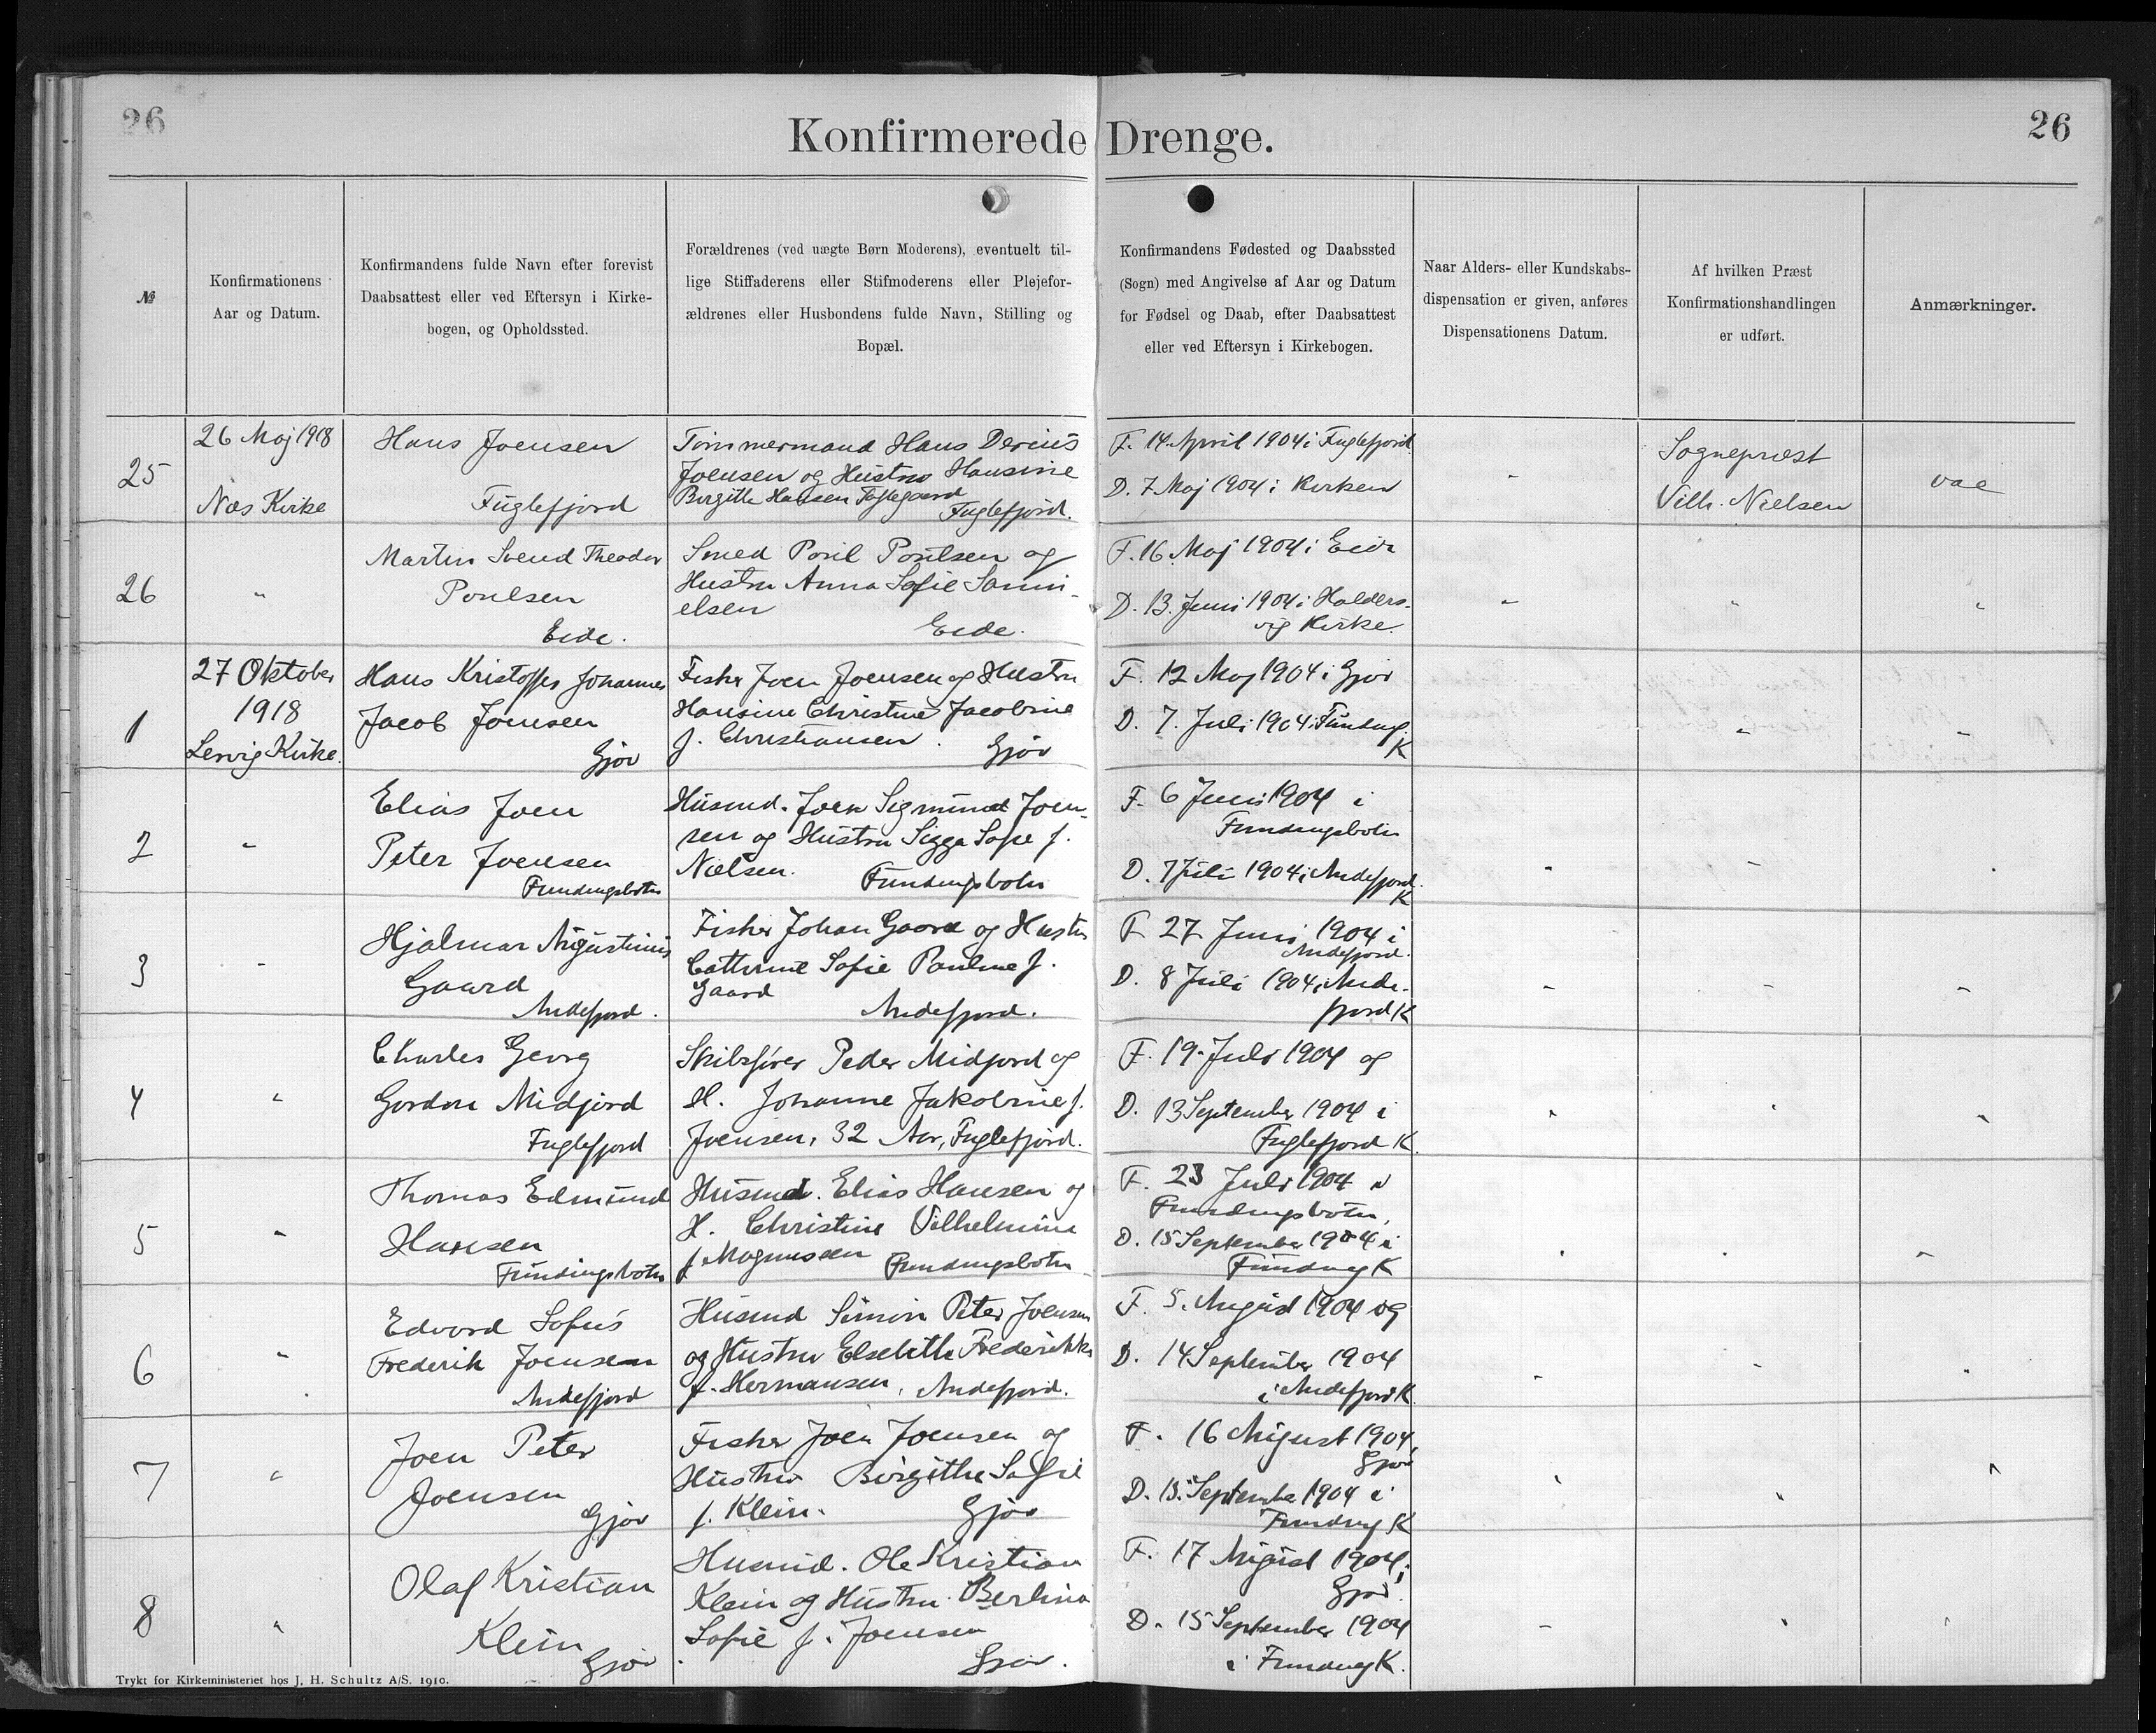 26
Konfirmerede Drenge.
26
№
Konfirmationens
Aar og Datum.
Konfirmandens fulde Navn efter forevist
Daabsattest eller ved Eftersyn i Kirke-
bogen, og Opholdssted.
Forældrenes (ved uægte Børn Moderens), eventuelt til-
lige Stiffaderens eller Stifmoderens eller Plejefor-
ældrenes eller Husbondens fulde Navn, Stilling og
Bopæl.
Konfirmandens Fødested og Daabssted
(Sogn) med Angivelse af Aar og Datum
for Fødsel og Daab, efter Daabsattest
eller ved Eftersyn i Kirkebogen.
Naar Alders- eller Kundskabs-
dispensation er given, anføres
Dispensationens Datum.
Af hvilken Præst
Konfirmationshandlingen
er udført.
Anmærkninger.
25
26 Maj 1918
Næs Kirke
Hans Joensen
Fuglefjord
Tømmermand Hans Derius
Joensen og Hustru Hansine
Birgitte Hansen
Fuglefjord.
F. 14. April 1904 i Fuglefjord
D. 7 Maj 1904 i Kirken
"
Sognepræst
Vilh. Nielsen
vac
26
"
Martin Svend Theodor
Poulsen
Eide.
Smed Poul Poulsen og
Hustru Anna Sofie Sami-
elsen
Eide.
F. 16 Maj 1904 i Eide
D. 13. Juni 1904 i Halders-
vig Kirke.
"
"
"
1
27 Oktober
1918
Lervig Kirke.
Hans Kristoffer Johannes
Jacob Joensen
Gjov
Fisker Joen Joensen og Hustru
Hansine Christine Jacobine
f. Christiansen.
Gjov
F. 12 Maj 1904 i Gjov
D. 7. Juli 1904 i Funding.
K
"
"
2
"
Elias Joen
Peter Joensen
Fundingsbotn
Husmd. Joen Sigmund Joen-
sen og Hustru Sigga Sofie f.
Nielsen.
Fundingsbotn
F. 6 Juni 1904 i
Fundingsbotn
D. 7 Juli 1904 i Andefjord.
K
"
"
"
3
"
Hjalmar Augustinus
Gaard
Andefjord.
Fisker Johan Gaard og Hustru
Cathrine Sofie Pouline f.
Gaard
Andefjord.
F. 27. Juni 1904 i
Andefjord.
D. 8 Juli 1904 i Ande-
fjord K
"
"
"
4
"
Charles Georg
Gordon Midjord
Fuglefjord
Skibsfører Peder Midjord og
H. Johanne Jakobine f.
Joensen, 32 Aar, Fuglefjord.
F. 19. Juli 1904 og
D. 13 September 1904 i
Fuglefjord K.
"
"
"
5
"
Thomas Edmund
Hansen
Fundingsbotn
Husmd. Elias Hansen og
H. Christine Vilhelmine
f. Magnussen Fundingsbotn
F. 23 Juli 1904 i
Fundingsbotn,
D. 15 September 1904 i
Funding K
"
"
"
6
"
Edvard Sofus
Frederik Joensen
Andefjord
Husmd Simon Peter Joensen
og Hustru Elsebeth Frederikke
f. Hermansen, Andefjord.
F. 5. August 1904 og
D. 14 September 1904
i Andefjord K.
"
"
"
7
"
Joen Peter
Joensen
Gjov
Fisker Joen Joensen og
Hustru Birgithe Sofie
f. Klein.
Gjov
F. 16 August 1904,
Gjov
D. 15. September 1904 i
Funding K
"
"
"
8
"
Olaf Kristian
Klein
Gjov
Husmd. Ole Kristian
Klein og Hustru Berlina
Sofie f. Joensen
Gjov.
F. 17 August 1904 i
Gjov.
D. 15 September 1904
i Funding K.
"
"
"
Trykt for Kirkeministeriet hos J. H. Schultz A/S. 1910.